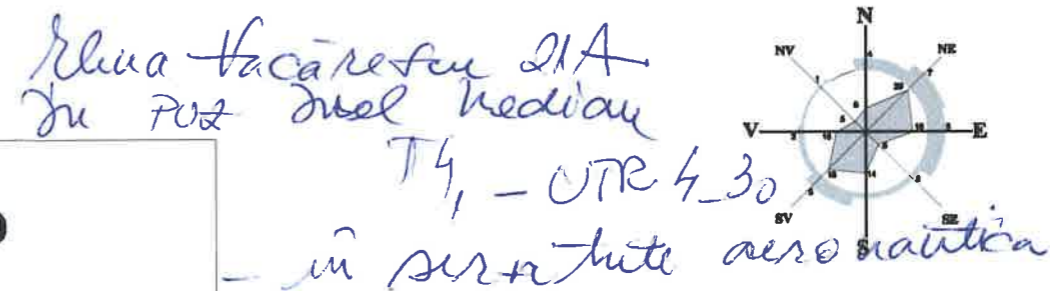 Elena Văcărescu 21A
în PUZ Inel Median
T4, - UTR 4-30
- în servitute aeronautica
N
NV
NE
V
E
SV
SE
S